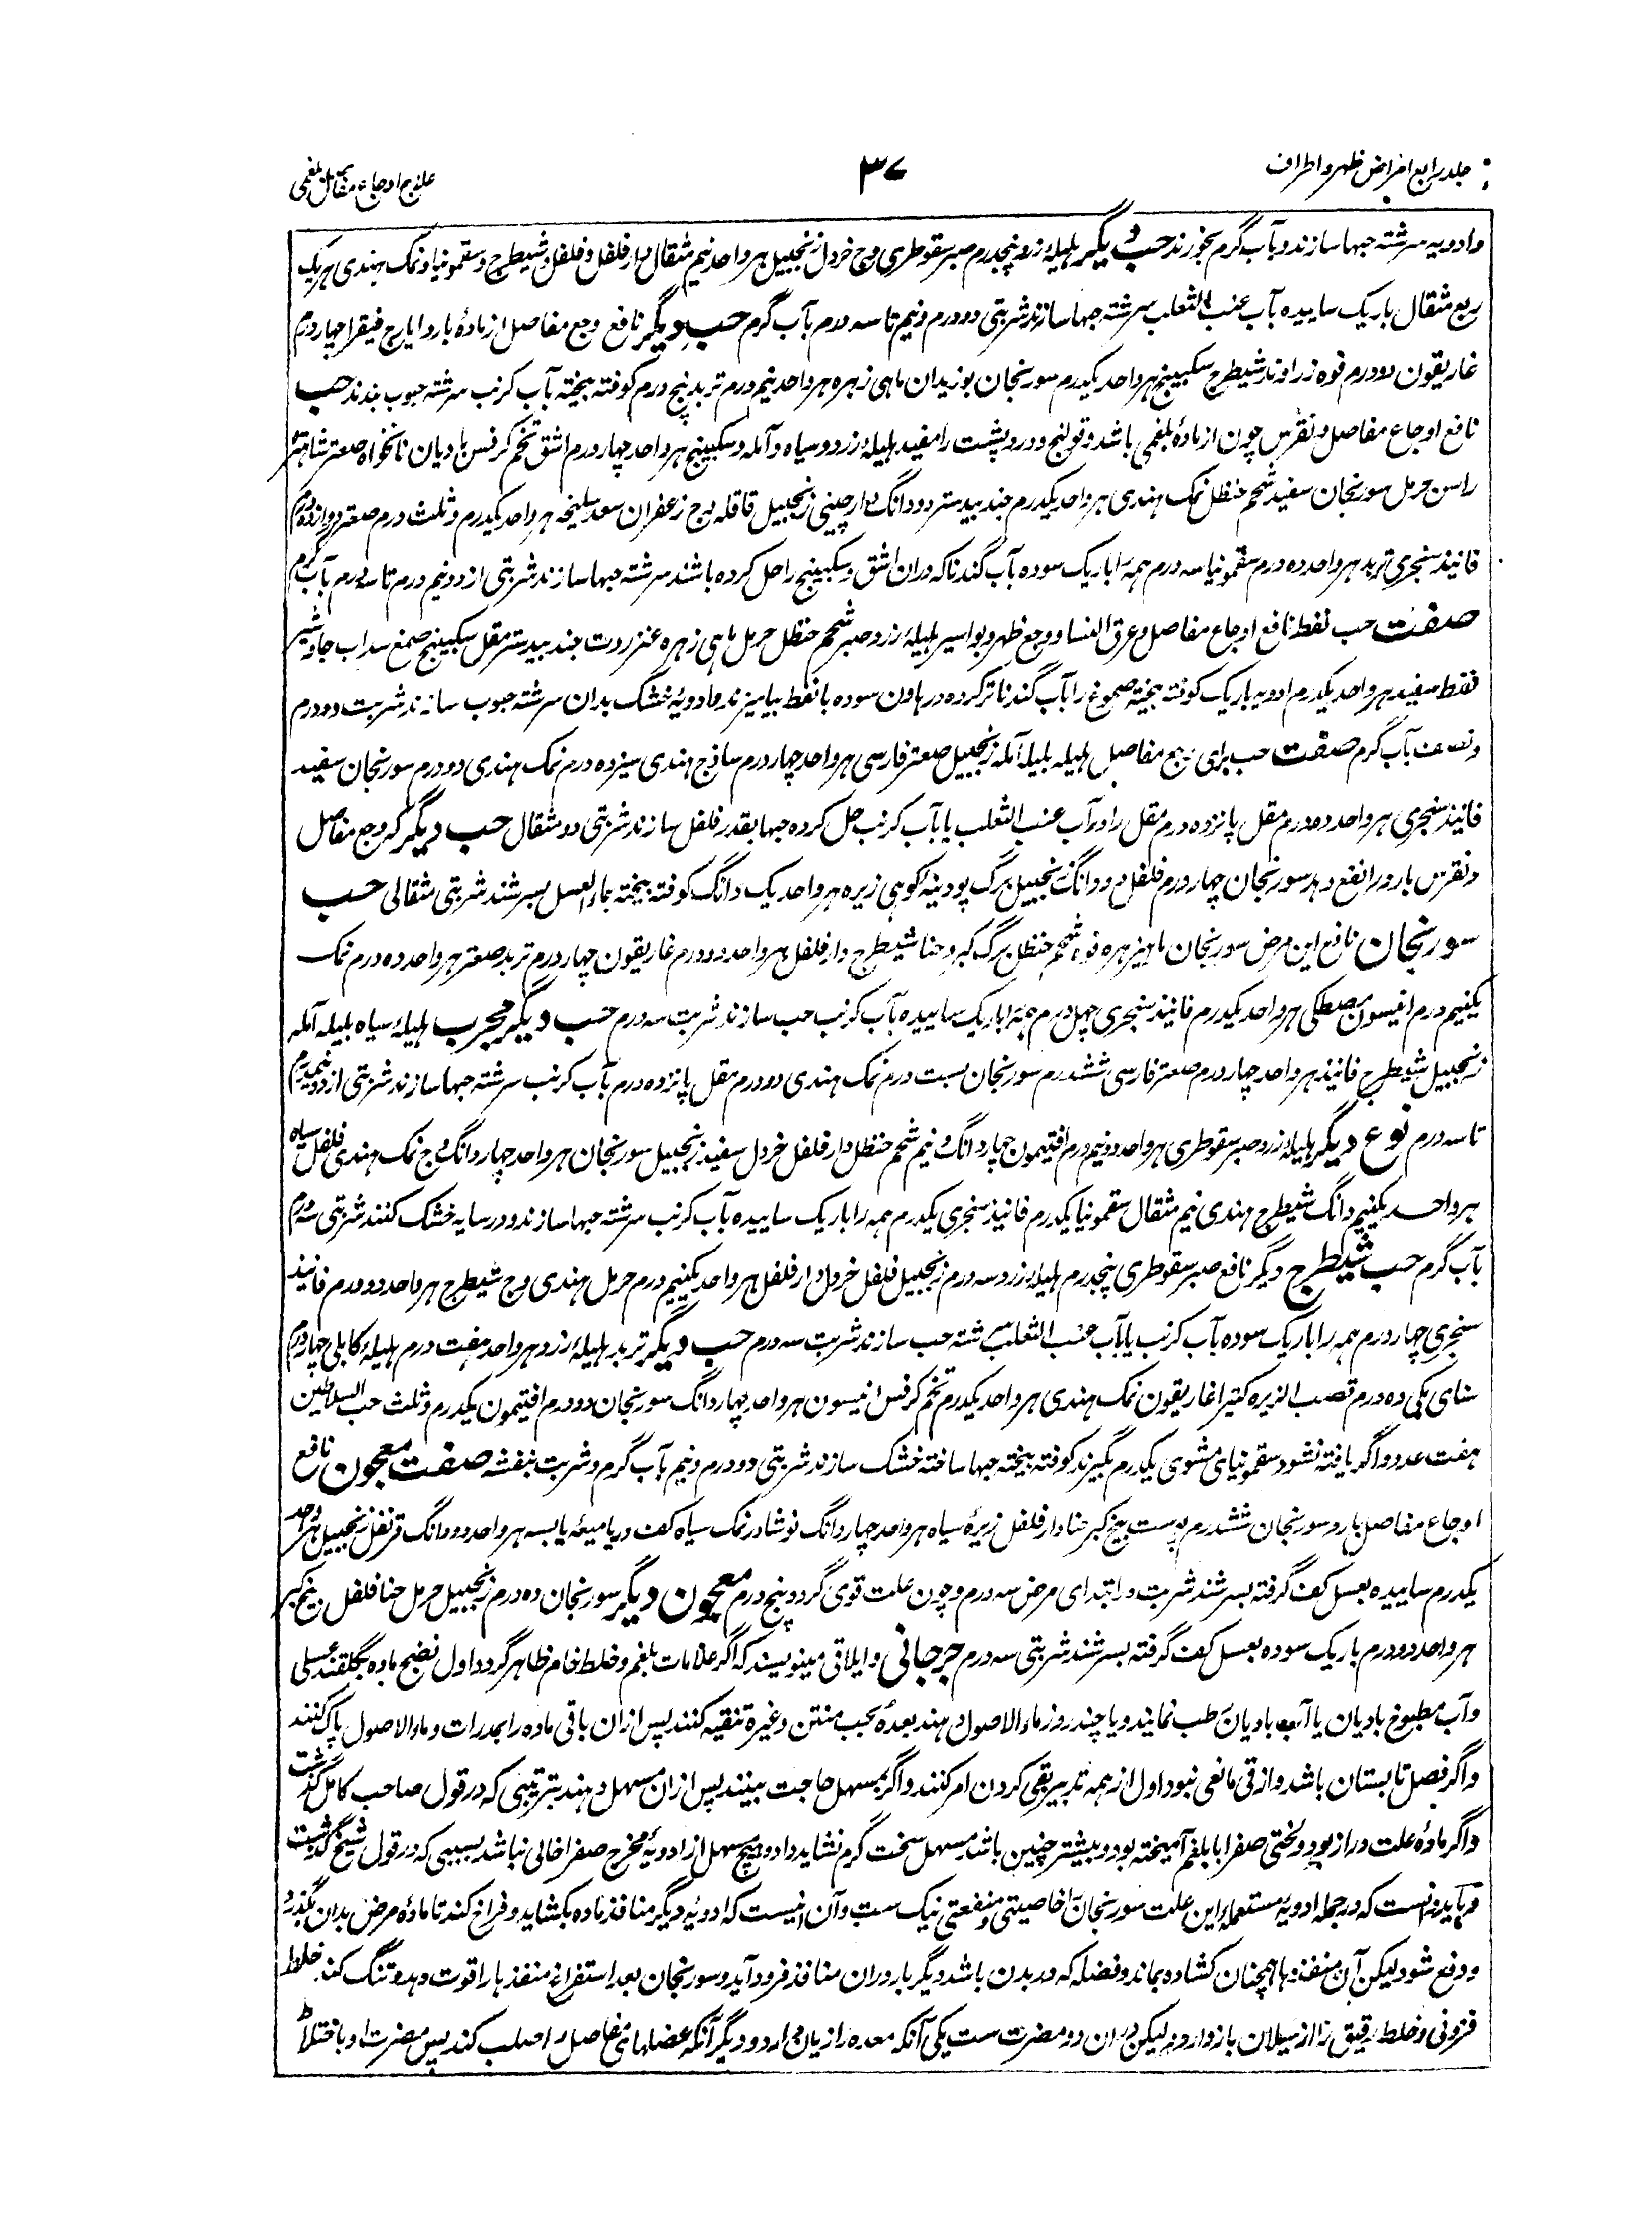 جلد رابع امراض ظهر و اطراف
۳۷
علاج اوجاع مفاصل بلغمی
وادویه سرشته حبها سازند و بآب گرم بخورند حب دیگر هلیلۀ زرد پنجدرم صبر سقوطری وج خردل زنجبیل هر واحد نیم مثقال دار فلفل و فلفل و شیطرج و سقمونیا و نمک هندی هر یک
ربع مثقال باریک ساییده بآب عنب الثعلب سرشته حبها سازند شربتی دو درم و نیم تا سه درم بآب گرم حب دیگر نافع وجع مفاصل از مادۀ بارد ایارج فیقرا چهار درم
غاریقون دو درم فوه زراوند شیطرج سکبینج هر واحد یکدرم سورنجان بوزیدان ماهی زهره هر واحد نیم درم تربد پنج درم کوفته بیخته بآب کرنب سرشته حبوب بندند حب
نافع اوجاع مفاصل و نقرس چون از مادۀ بلغمی باشد و قولنج و درد پشت را مفید هلیلۀ زرد و سیاه و آمله و سکبینج هر واحد چهار درم اشق تخم کرفس بادیان نانخواه صعتر شاهتره
راسن حرمل سورنجان سفید شحم حنظل نمک هندی هر واحد یکدرم جند بیدستر دو دانگ دارچینی زنجبیل قاقله وج زعفران سعد سلیخه هر واحد یکدرم و ثلث درم صعتر دوازده درم
فانیذ سنجری تربد هر واحد ده درم سقمونیا سه درم همه را باریک سوده بآب گندنا که دران اشق و سکبینج را حل کرده باشند سرشته حبها سازند شربتی از دو نیم درم تا سه درم بآب گرم
صفت حب نفط نافع اوجاع مفاصل و عرق النسا و وجع ظهر و بواسیر هلیلۀ زرد صبر شحم حنظل حرمل ماهی زهره عنزروت جند بیدستر مقل سکبینج صمغ سداب جاوشیر
نفط سفید هر واحد یکدرم ادویه باریک کوفته بیخته صموغ را بآب گندنا تر کرده در هاون سوده با نفط بیامیزند و ادویۀ خشک بدان سرشته حبوب سازند شربت دو درم
و نصف بآب گرم صفت حب برای ریح مفاصل هلیله بلیله آمله زنجبیل صعتر فارسی هر واحد چهار درم ساذج هندی سیزده درم نمک هندی دو درم سورنجان سفید
فانیذ سنجری هر واحد ده درم مقل پانزده درم مقل را در آب عنب الثعلب یا بآب کرنب حل کرده حبها بقدر فلفل سازند شربتی دو مثقال حب دیگر که وجع مفاصل
و نقرس بارد را نفع دهد سورنجان چهار درم فلفل دو دانگ زنجبیل برگ پودینۀ کوهی زیره هر واحد یک دانگ کوفته بیخته بماء العسل بسرشند شربتی مثقالی حب
سورنجان نافع این مرض سورنجان ماهیزهره فوه شحم حنظل برگ کبر و حنا شیطرج دار فلفل هر واحد دو درم غاریقون چهار درم تربد صعتر هر واحد ده درم نمک
یکنیم درم انیسون مصطکی هر واحد یکدرم فانیذ سنجری چهل درم همه را باریک ساییده بآب کرنب حب سازند شربت سه درم حب دیگر مجرب هلیلۀ سیاه بلیله آمله
زنجبیل شیطرج فانیذ هر واحد چهار درم صعتر فارسی ششدرم سورنجان بست درم نمک هندی دو درم مقل پانزده درم بآب کرنب سرشته حبها سازند شربتی از دو نیم درم
تا سه درم نوع دیگر هلیلۀ زرد صبر سقوطری هر واحد دو نیم درم افتیمون چهار دانگ و نیم شحم حنظل دار فلفل خردل سفید زنجبیل سورنجان هر واحد چهار دانگ وج نمک هندی فلفل سیاه
هر واحد یکنیم دانگ شیطرج هندی نیم مثقال سقمونیا یکدرم فانیذ سنجری یکدرم همه را باریک ساییده بآب کرنب سرشته حبها سازند و در سایه خشک کنند شربتی سه درم
بآب گرم حب شیطرج دیگر نافع صبر سقوطری پنجدرم هلیلۀ زرد سه درم زنجبیل فلفل خردل دار فلفل هر واحد یکنیم درم حرمل هندی وج شیطرج هر واحد دو درم فانیذ
سنجری چهار درم همه را باریک سوده بآب کرنب یا بآب عنب الثعلب سرشته حب سازند شربت سه درم حب دیگر تربد هلیلۀ زرد هر واحد هفت درم هلیلۀ کابلی چهار درم
سنای مکی ده درم قصب الزریره کتیرا غاریقون نمک هندی هر واحد یکدرم تخم کرفس انیسون هر واحد چهار دانگ سورنجان دو درم افتیمون یکدرم و ثلث حب السلاطین
هفت عدد و اگر یافته نشود سقمونیای مشوی یکدرم بگیرند کوفته بیخته حبها ساخته خشک سازند شربتی دو درم و نیم بآب گرم و شربت بنفشه صفت معجون نافع
اوجاع مفاصل بارد سورنجان ششدرم پوست بیخ کبر حنا دار فلفل زیرۀ سیاه هر واحد چهار دانگ نوشادر نمک سیاه کف دریا میعۀ یابسه هر واحد دو دانگ قرنفل زنجبیل هر واحد
یکدرم ساییده بعسل کف گرفته بسرشند شربت در ابتدای مرض سه درم و چون علت قوی گردد پنج درم معجون دیگر سورنجان ده درم زنجبیل حرمل حنا فلفل بیخ کبر
هر واحد دو درم باریک سوده بعسل کف گرفته بسرشند شربتی سه درم جرجانی و ایلاقی مینویسند که اگر علامات بلغم و خلط خام ظاهر گردد اول نضج ماده بگلقند عسلی
و آب مطبوخ بادیان یا آب بادیان رطب نمایند و یا چند روز ماء الاصول دهند بعده بحب منتن و غیره تنقیه کنند پس ازان باقی ماده را بمدرات و ماء الاصول پاک کنند
و اگر فصل تابستان باشد و از قی مانعی نبود اول از همه تدبیر بقی کردن امر کنند و اگر بمسهل حاجت بینند پس ازان مسهل دهند بترتیبی که در قول صاحب کامل گذشت
و اگر مادۀ علت دراز بود و لختی صفرا با بلغم آمیخته بود و بیشتر چنین باشد مسهل سخت گرم نشاید داد و هیچ مسهل از ادویۀ مخرج صفرا خالی نباشد بسببی که در قول شیخ گذشت
و باید دانست که در جمله ادویۀ مستعملۀ این علت سورنجان را خاصیتی و منفعتی نیک ست و آن اینست که ادویۀ دیگر منافذ ماده بکشاید و فراخ کند تا مادۀ مرض بدان بگذرد
و دفع شود لیکن آن منفذها همچنان کشاده بماند و فضله که در بدن باشد دیگر بار دران منافذ فرود آید و سورنجان بعد استفراغ منفذها را قوت دهد و تنگ کند خلط
فزونی و خلط رقیق را از سیلان باز دارد و لیکن دران دو مضرت ست یکی آنکه معده را زیان دارد و دیگر آنکه عضلهای مفاصل را صلب کند پس مضرت او باختلاط